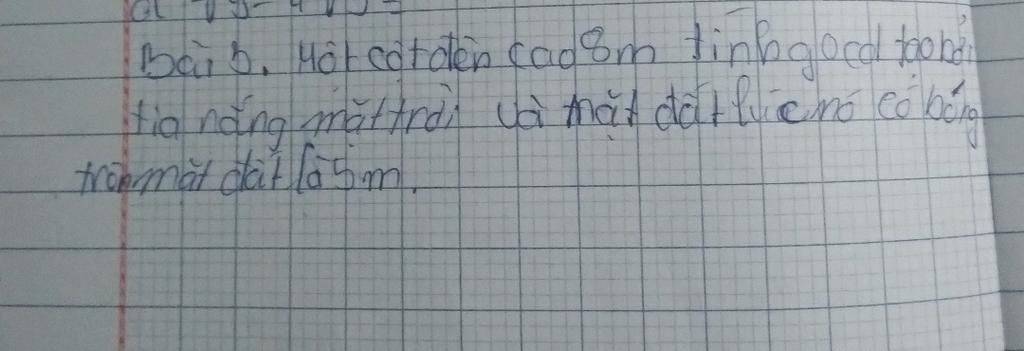 Bài 6. Một cột điện cao 8m tính góc α tạo bởi
tia nắng mặt trời và mặt đất lúc nó có bóng
trên mặt đất là 5m.